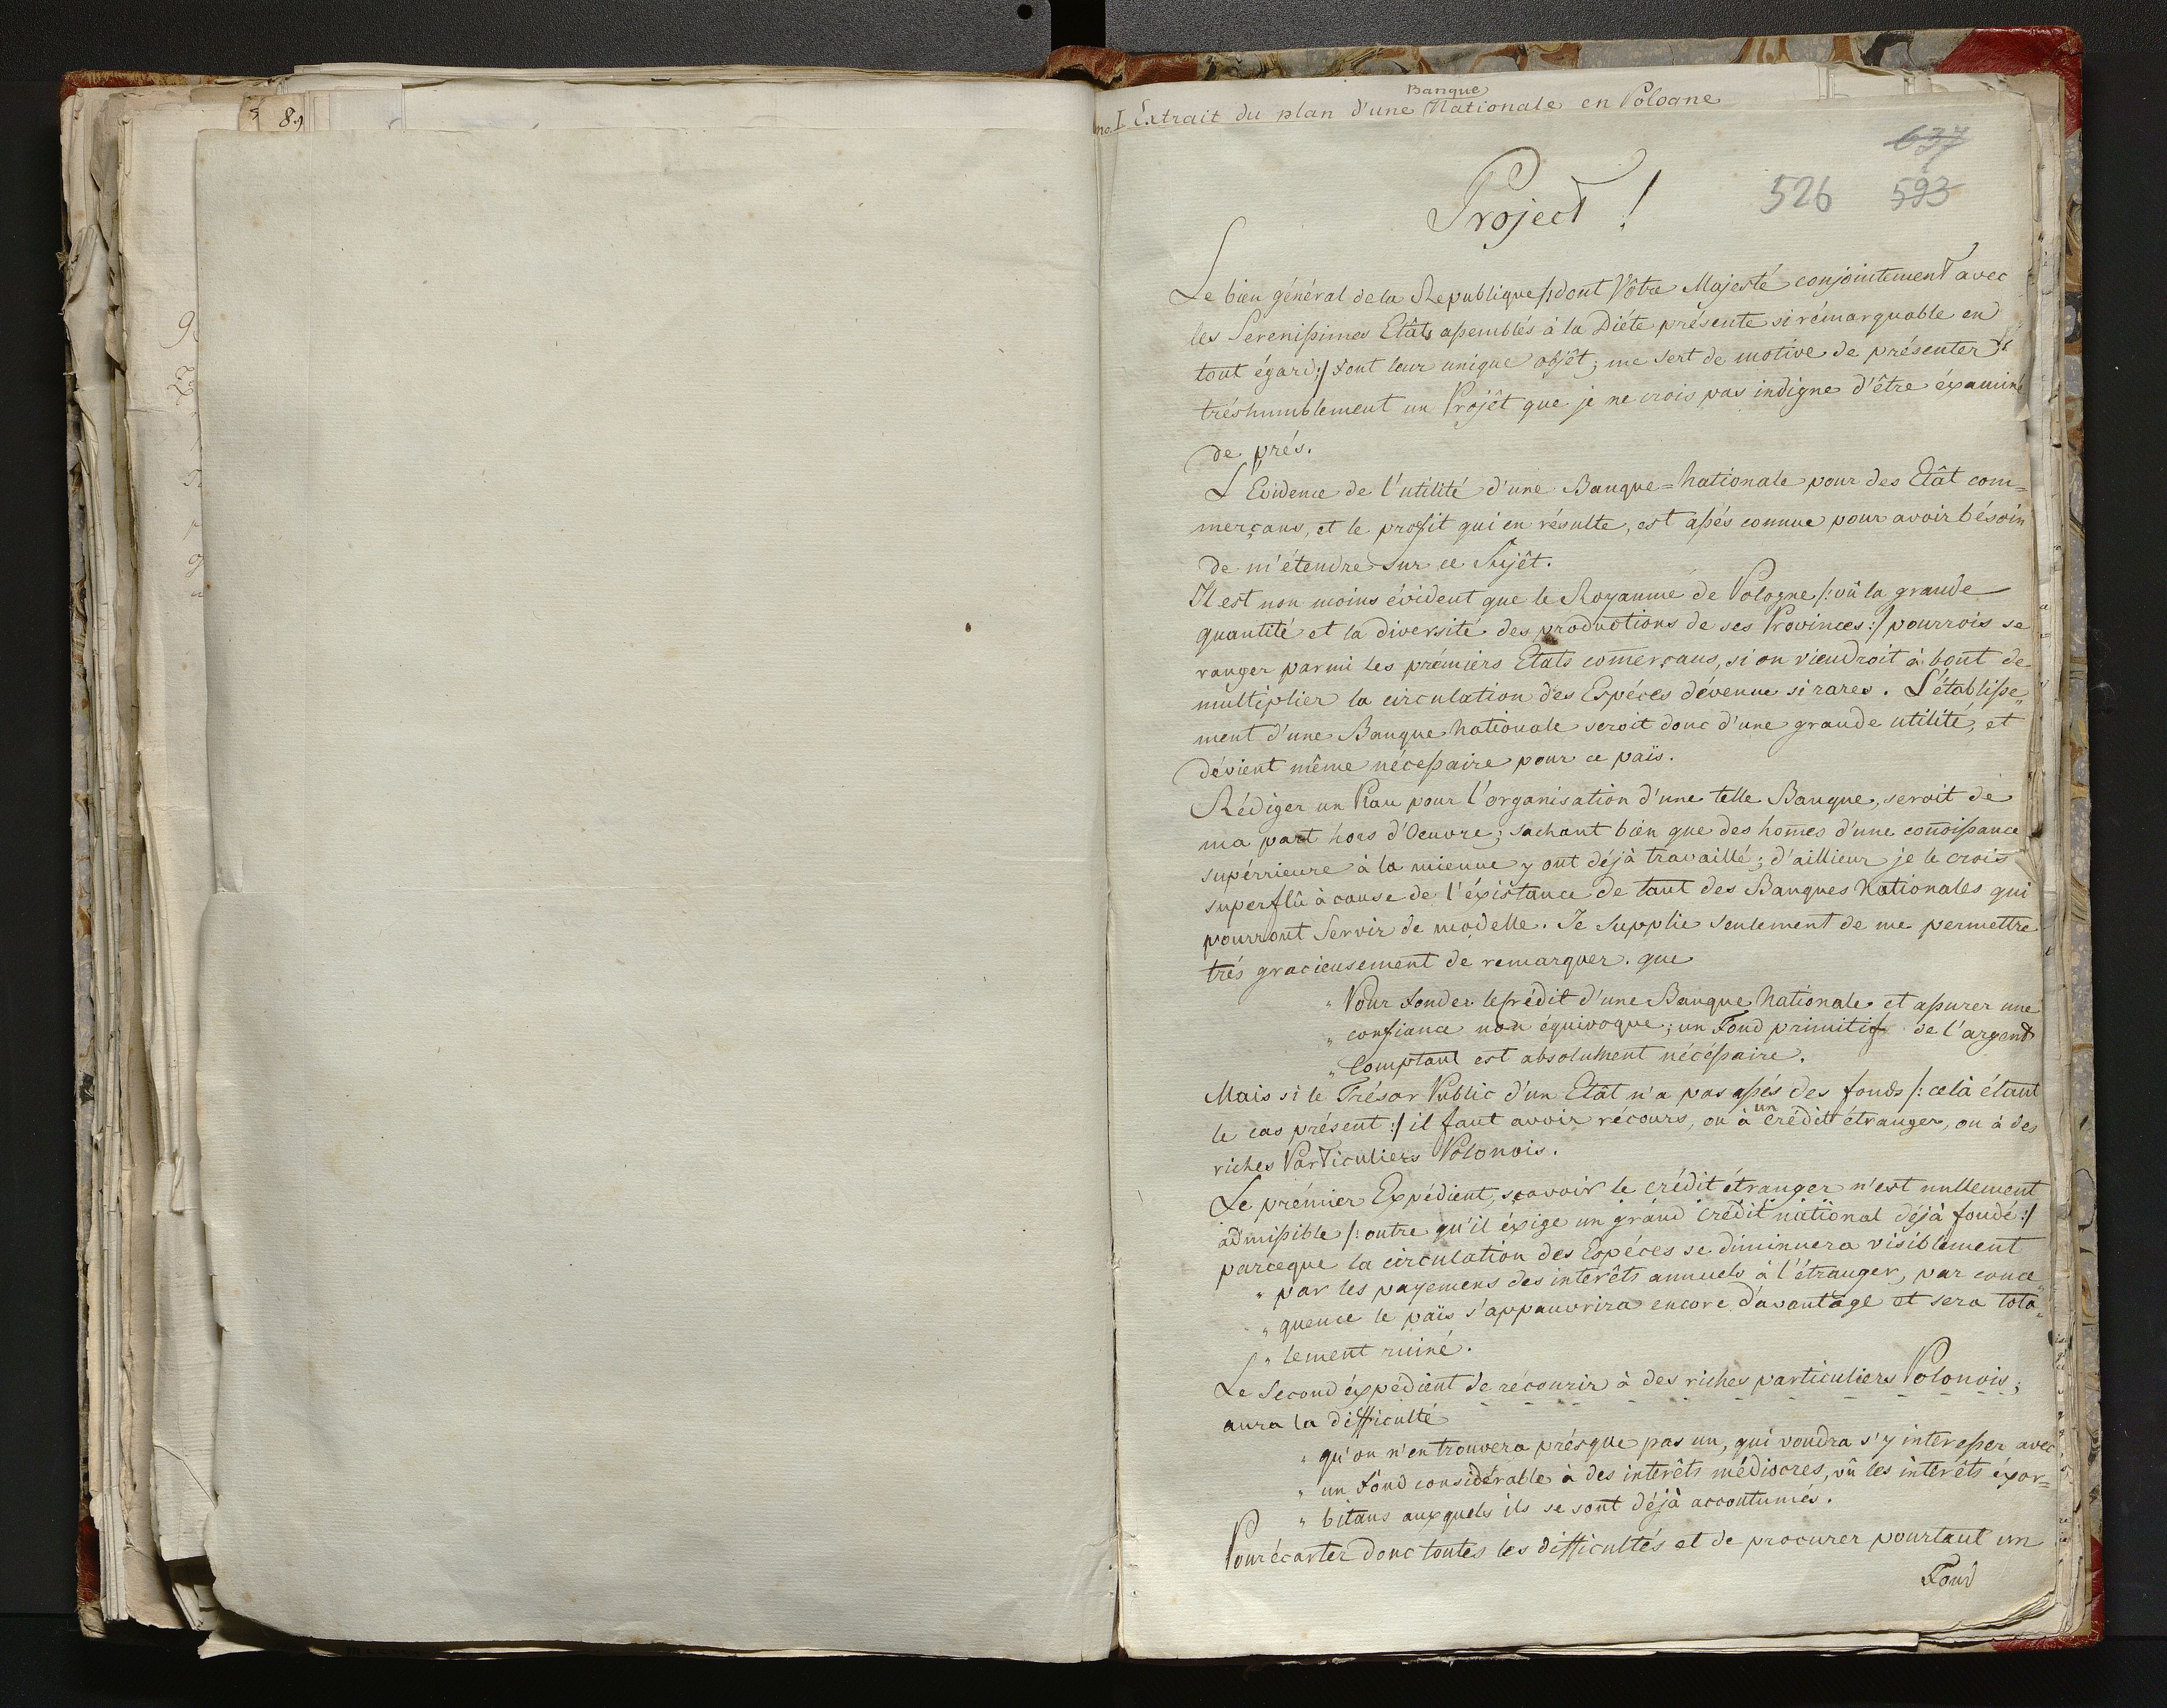 8.9
no. I Extrait du plan d'une Banque Nationale en Pologne
637
526 593
Project !
Le bien général de la Republique /: dont Vôtre Majesté conjointement avec
les Serenissimes Etâts assemblés à la Diéte présente si rémarquable en
tout égard :/ font leur unique objêt; me sert de motive de présenter
trés humblement un Projêt que je ne crois pas indigne d'être éxaminé
de prés.
L'Evidence de l'utilité d'une Banque=Nationale pour des Etât com=
merçans, et le profit qui en résulte, est assés connue pour avoir bésoin
de m'étendre sur ce Sujêt.
Il est non moins évident que le Royaume de Pologne /: vû la grande
quantité et la diversité des productions de ses Provinces :/ pourrois se
ranger parmi les prémiers Etats com̅erçans, si on viendroit à bout de
multiplier la circulation des Espéces dévenue si rares. L'établisse„
ment d'une Banque Nationale seroit donc d'une grande utilité, et
dévient même nécessaire pour ce païs.
Rédiger un Plan pour l'organisation d'une telle Banque, seroit de
ma part hors d'Oeuvre; sachant bien que des hom̅es d'une con̅oissance
supérrieure à la mienne y ont déjà travaillé; d'aillieur je le crois
superflû à cause de l'éxistance de tant des Banques Nationales qui
pourront Servir de modelle. Je Supplie seulement de me permettre
trés gracieusement de remarquer. que
„ Pour fonder le Crédit d'une Banque Nationale et assurer une
„ confiance non équivoque; un Fond primitif de l'argent
„ Comptant est absolument nécéssaire.
Mais si le Trésor Public d'un Etât n'a pas assés des fonds /: celà étant
le cas présent :/ il faut avoir récours, ou à un crédit étranger, ou à des
riches Particuliers Polonois.
Le prémier Expédient, sçavoir le crédit étranger n'est nullement
admissible /: outre qu'il éxige un grand crédit national déjà fondé :/
parceque la circulation des Espéces se diminuera visiblement
„ par les payemens des interêts annuels à l'étranger, par conce„
„ quence le païs s'appauvrira encore d'avantage et sera tota„
„ lement ruiné.
Le Second éxpédient de récourir à des riches particuliers Polonois;
aura la difficulté
„ qu'on n'en trouvera présque pas un, qui voudra s'y interesser avec
„ un Fond considérable à des interêts médiocres, vû les interêts éxor=
„ bitans auxquels ils se sont déjà accoutumés.
Pour écarter donc toutes les difficultés et de procurer pourtant un
Fond